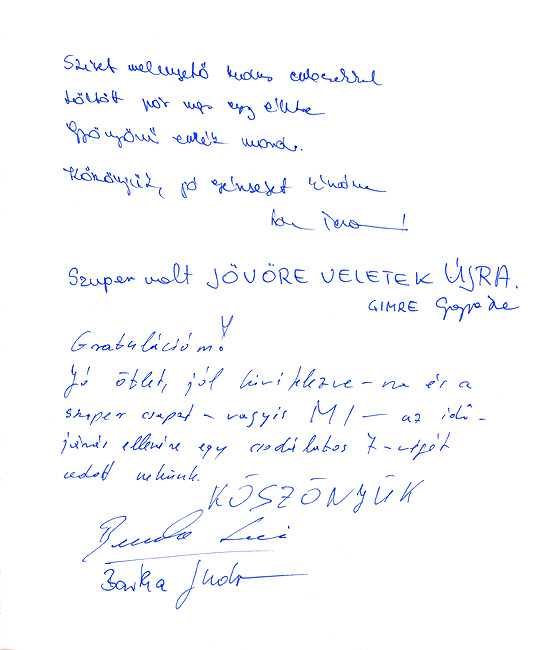 Szívet melengető kedves emberekkel
töltött pár nap egy életre
Gyönyörű emlék marad.
Köszönjük, jó egészséget kívánva
Szuper volt JÖVŐRE VELETEK ÚJRA.
GIMRE
Gratulációm!
Jó ötlet, jól kivitelezve – na és a
szuper csapat – vagyis MI – az idő-
járás ellenére egy csodálatos 7-végét
adott nekünk.
KÖSZÖNJÜK
Barka Judit